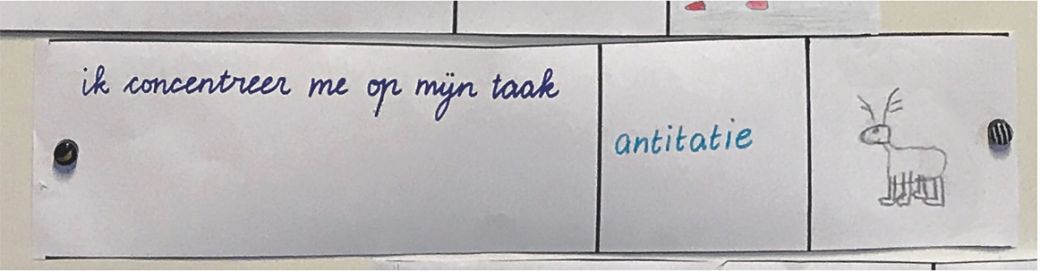 ik concentreer me op mijn taak
antitatie